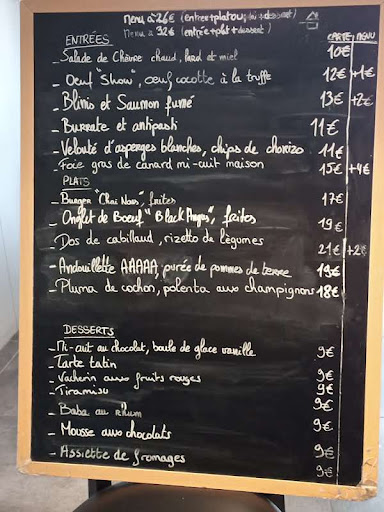 Menu à 26€ (entrée+plat ou plat + dessert)
Menu à 32€ (entrée+plat+dessert)
ENTRÉES CARTE MENU
- Salade de Chèvre chaud, lard et miel 10€
- Oeuf "Show", oeuf cocotte à la truffe 12€ +1€
- Blinis et Saumon fumé 13€ +2€
- Burrata et antipasti 11€
- Velouté d'asperges blanches, chips de chorizo 11€
- Foie gras de canard mi-cuit maison 15€ +4€
PLATS
- Burger "Chai Nous", frites 17€
- Onglet de Boeuf "Black Angus", frites 19€
- Dos de cabillaud, rizetto de légumes 21€ +2€
- Andouillette AAAAA, purée de pommes de terre 19€
- Pluma de cochon, polenta aux champignons 18€
DESSERTS
- Mi-cuit au chocolat, boule de glace vanille 9€
- Tarte tatin 9€
- Vacherin aux fruits rouges 9€
- Tiramisu 9€
- Baba au rhum 9€
- Mousse aux chocolats 9€
- Assiette de fromages 9€
9€